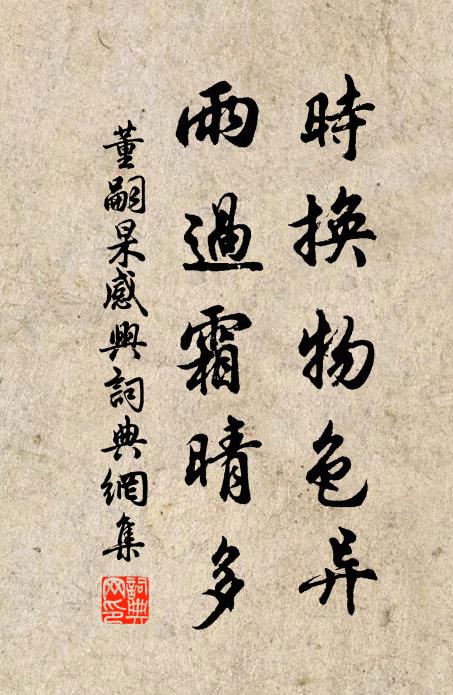 時換物色异
雨過霜晴多
董嗣杲感興詞典網集
詞典网印